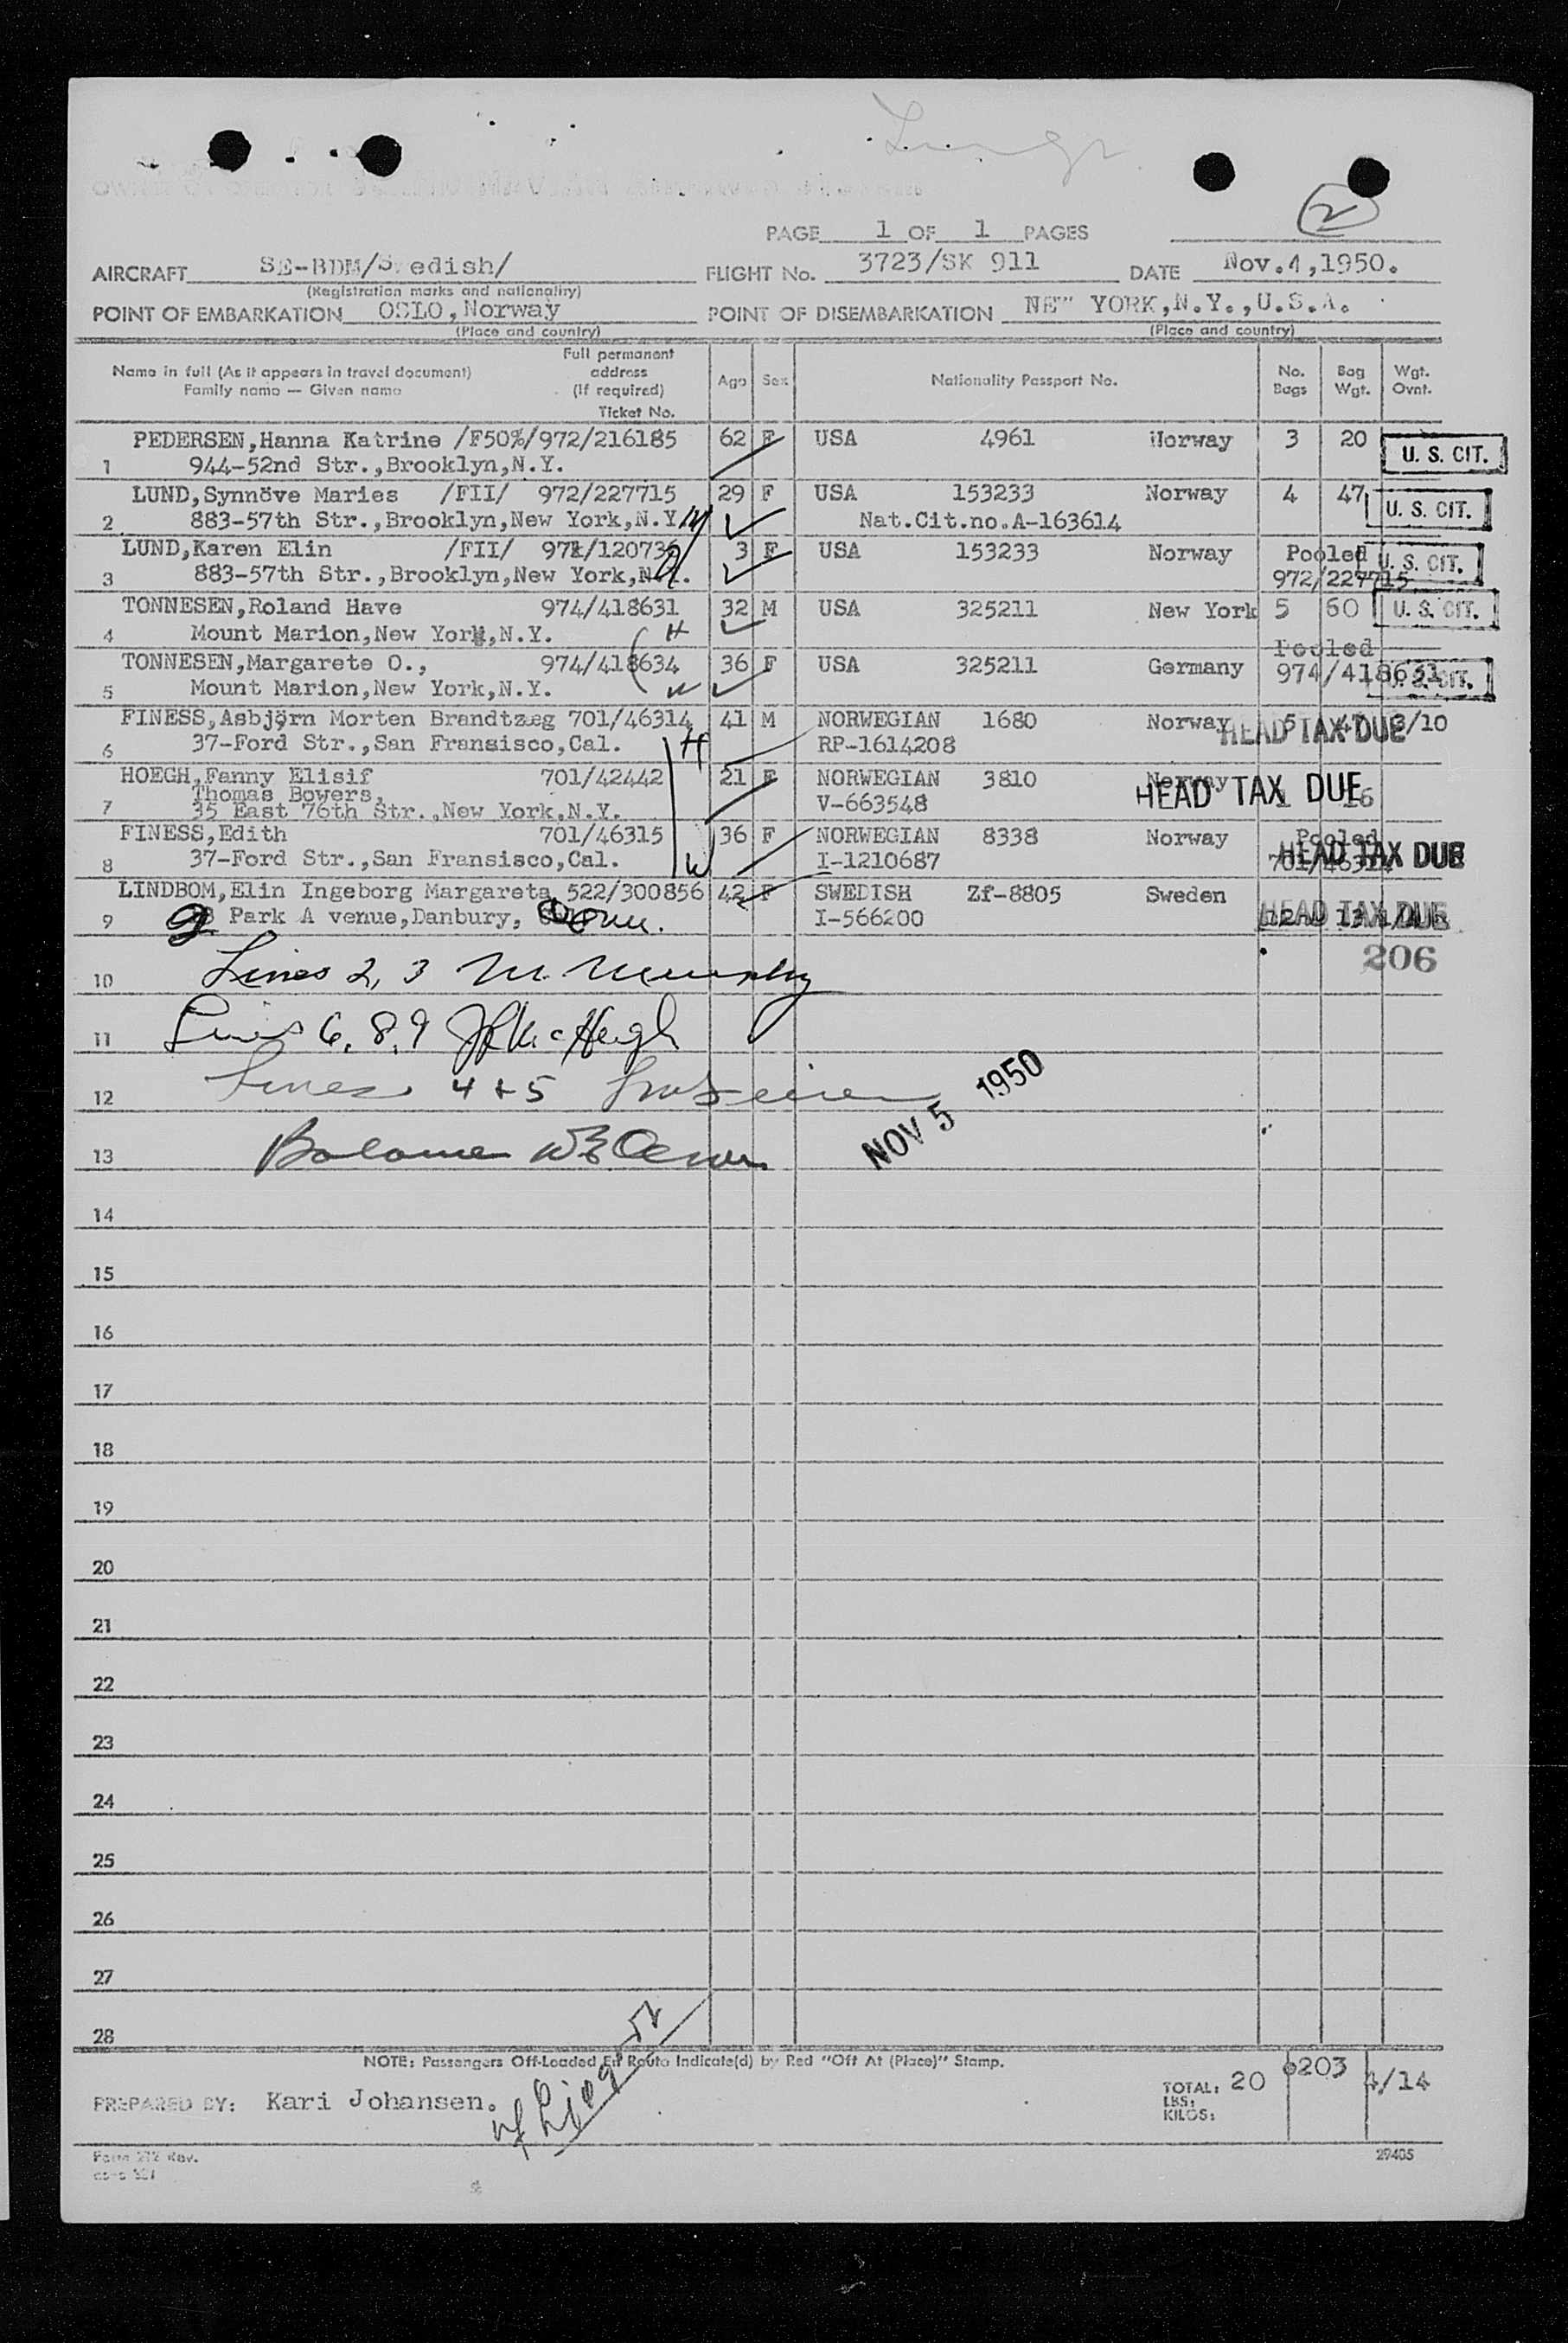 2
PAGE 1 OF 1 PAGES
AIRCRAFT SE-BDM/Swedish/ FLIGHT No. 3723/SK 911 DATE Nov.4,1950.
(Registration marks and nationality)
POINT OF EMBARKATION OSLO,Norway POINT OF DISEMBARKATION NEW YORK,N.Y.,U.S.A.
(Place and country) (Place and country)
Name in full (As it appears in travel document) Family name — Given name Full permanent address (If required) Ticket No. Age Sex Nationality Passport No. No. Bags Bag Wgt. Wgt. Ovnt.
PEDERSEN,Hanna Katrine /F50%/972/216185 62 F USA 4961 Norway 3 20 U. S. CIT.
1 944-52nd Str.,Brooklyn,N.Y.
LUND,Synnöve Maries /FII/ 972/227715 29 F USA 153233 Norway 4 47 U. S. CIT.
2 883-57th Str.,Brooklyn,New York,N.Y. Nat.Cit.no.A-163614
LUND,Karen Elin /FII/ 972/120736 3 F USA 153233 Norway Pooled U. S. CIT.
3 883-57th Str.,Brooklyn,New York,N.Y. 972/227715
TONNESEN,Roland Have 974/418631 32 M USA 325211 New York 5 60 U. S. CIT.
4 Mount Marion,New York,N.Y. H
TONNESEN,Margarete O., 974/418634 36 F USA 325211 Germany Pooled 974/418631 U. S. CIT.
5 Mount Marion,New York,N.Y. W
FINESS,Asbjörn Morten Brandtzæg 701/46314 41 M NORWEGIAN 1680 Norway 5 47 3/10 HEAD TAX DUE
6 37-Ford Str.,San Fransisco,Cal. H RP-1614208
HOEGH,Fanny Elisif 701/42442 21 F NORWEGIAN 3810 Norway
Thomas Bowers, V-663548 HEAD TAX DUE
7 35 East 76th Str.,New York,N.Y.
FINESS,Edith 701/46315 36 F NORWEGIAN 8338 Norway Pooled
8 37-Ford Str.,San Fransisco,Cal. W I-1210687 701/46314 HEAD TAX DUE
LINDBOM,Elin Ingeborg Margareta 522/300856 42 F SWEDISH Zf-8805 Sweden
9 Park A venue,Danbury, Conn. I-566200 HEAD TAX DUE
206
10 Lines 2, 3 M. Murphy
11 Lines 6, 8, 9
12 Lines 4 + 5
NOV 5 1950
13 Balance
14
15
16
17
18
19
20
21
22
23
24
25
26
27
28
NOTE: Passengers Off-Loaded En Route Indicate(d) by Red "Off At (Place)" Stamp.
PREPARED BY: Kari Johansen. TOTAL: 20 203 4/14
LBS:
KILOS:
Form 212 Rev.
29405